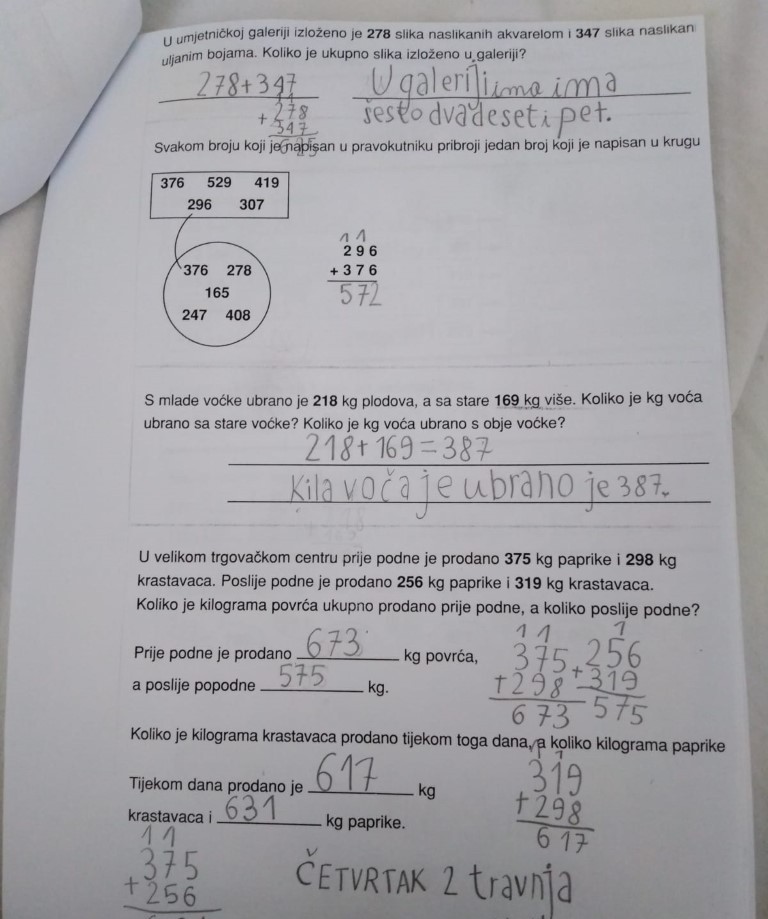 U umjetničkoj galeriji izloženo je 278 slika naslikanih akvarelom i 347 slika naslikan
uljanim bojama. Koliko je ukupno slika izloženo u galeriji?
278+347
U galeriji ima
278
+ 347
625
šesto dvadeset i pet.
Svakom broju koji je napisan u pravokutniku pribroji jedan broj koji je napisan u krugu
376 529 419
296 307
376 278
165
247 408
1 1
296
+ 376
572
S mlade voćke ubrano je 218 kg plodova, a sa stare 169 kg više. Koliko je kg voća
ubrano sa stare voćke? Koliko je kg voća ubrano s obje voćke?
218+169=387
Kila voča je ubrano je 387.
U velikom trgovačkom centru prije podne je prodano 375 kg paprike i 298 kg
krastavaca. Poslije podne je prodano 256 kg paprike i 319 kg krastavaca.
Koliko je kilograma povrća ukupno prodano prije podne, a koliko poslije podne?
Prije podne je prodano 673 kg povrća,
a poslije popodne 575 kg.
1 1
375
+298
673
1
256
+319
575
Koliko je kilograma krastavaca prodano tijekom toga dana, a koliko kilograma paprike
Tijekom dana prodano je 617 kg
krastavaca i 631 kg paprike.
1
319
+298
617
1 1
375
+256
ČETVRTAK 2 travnja